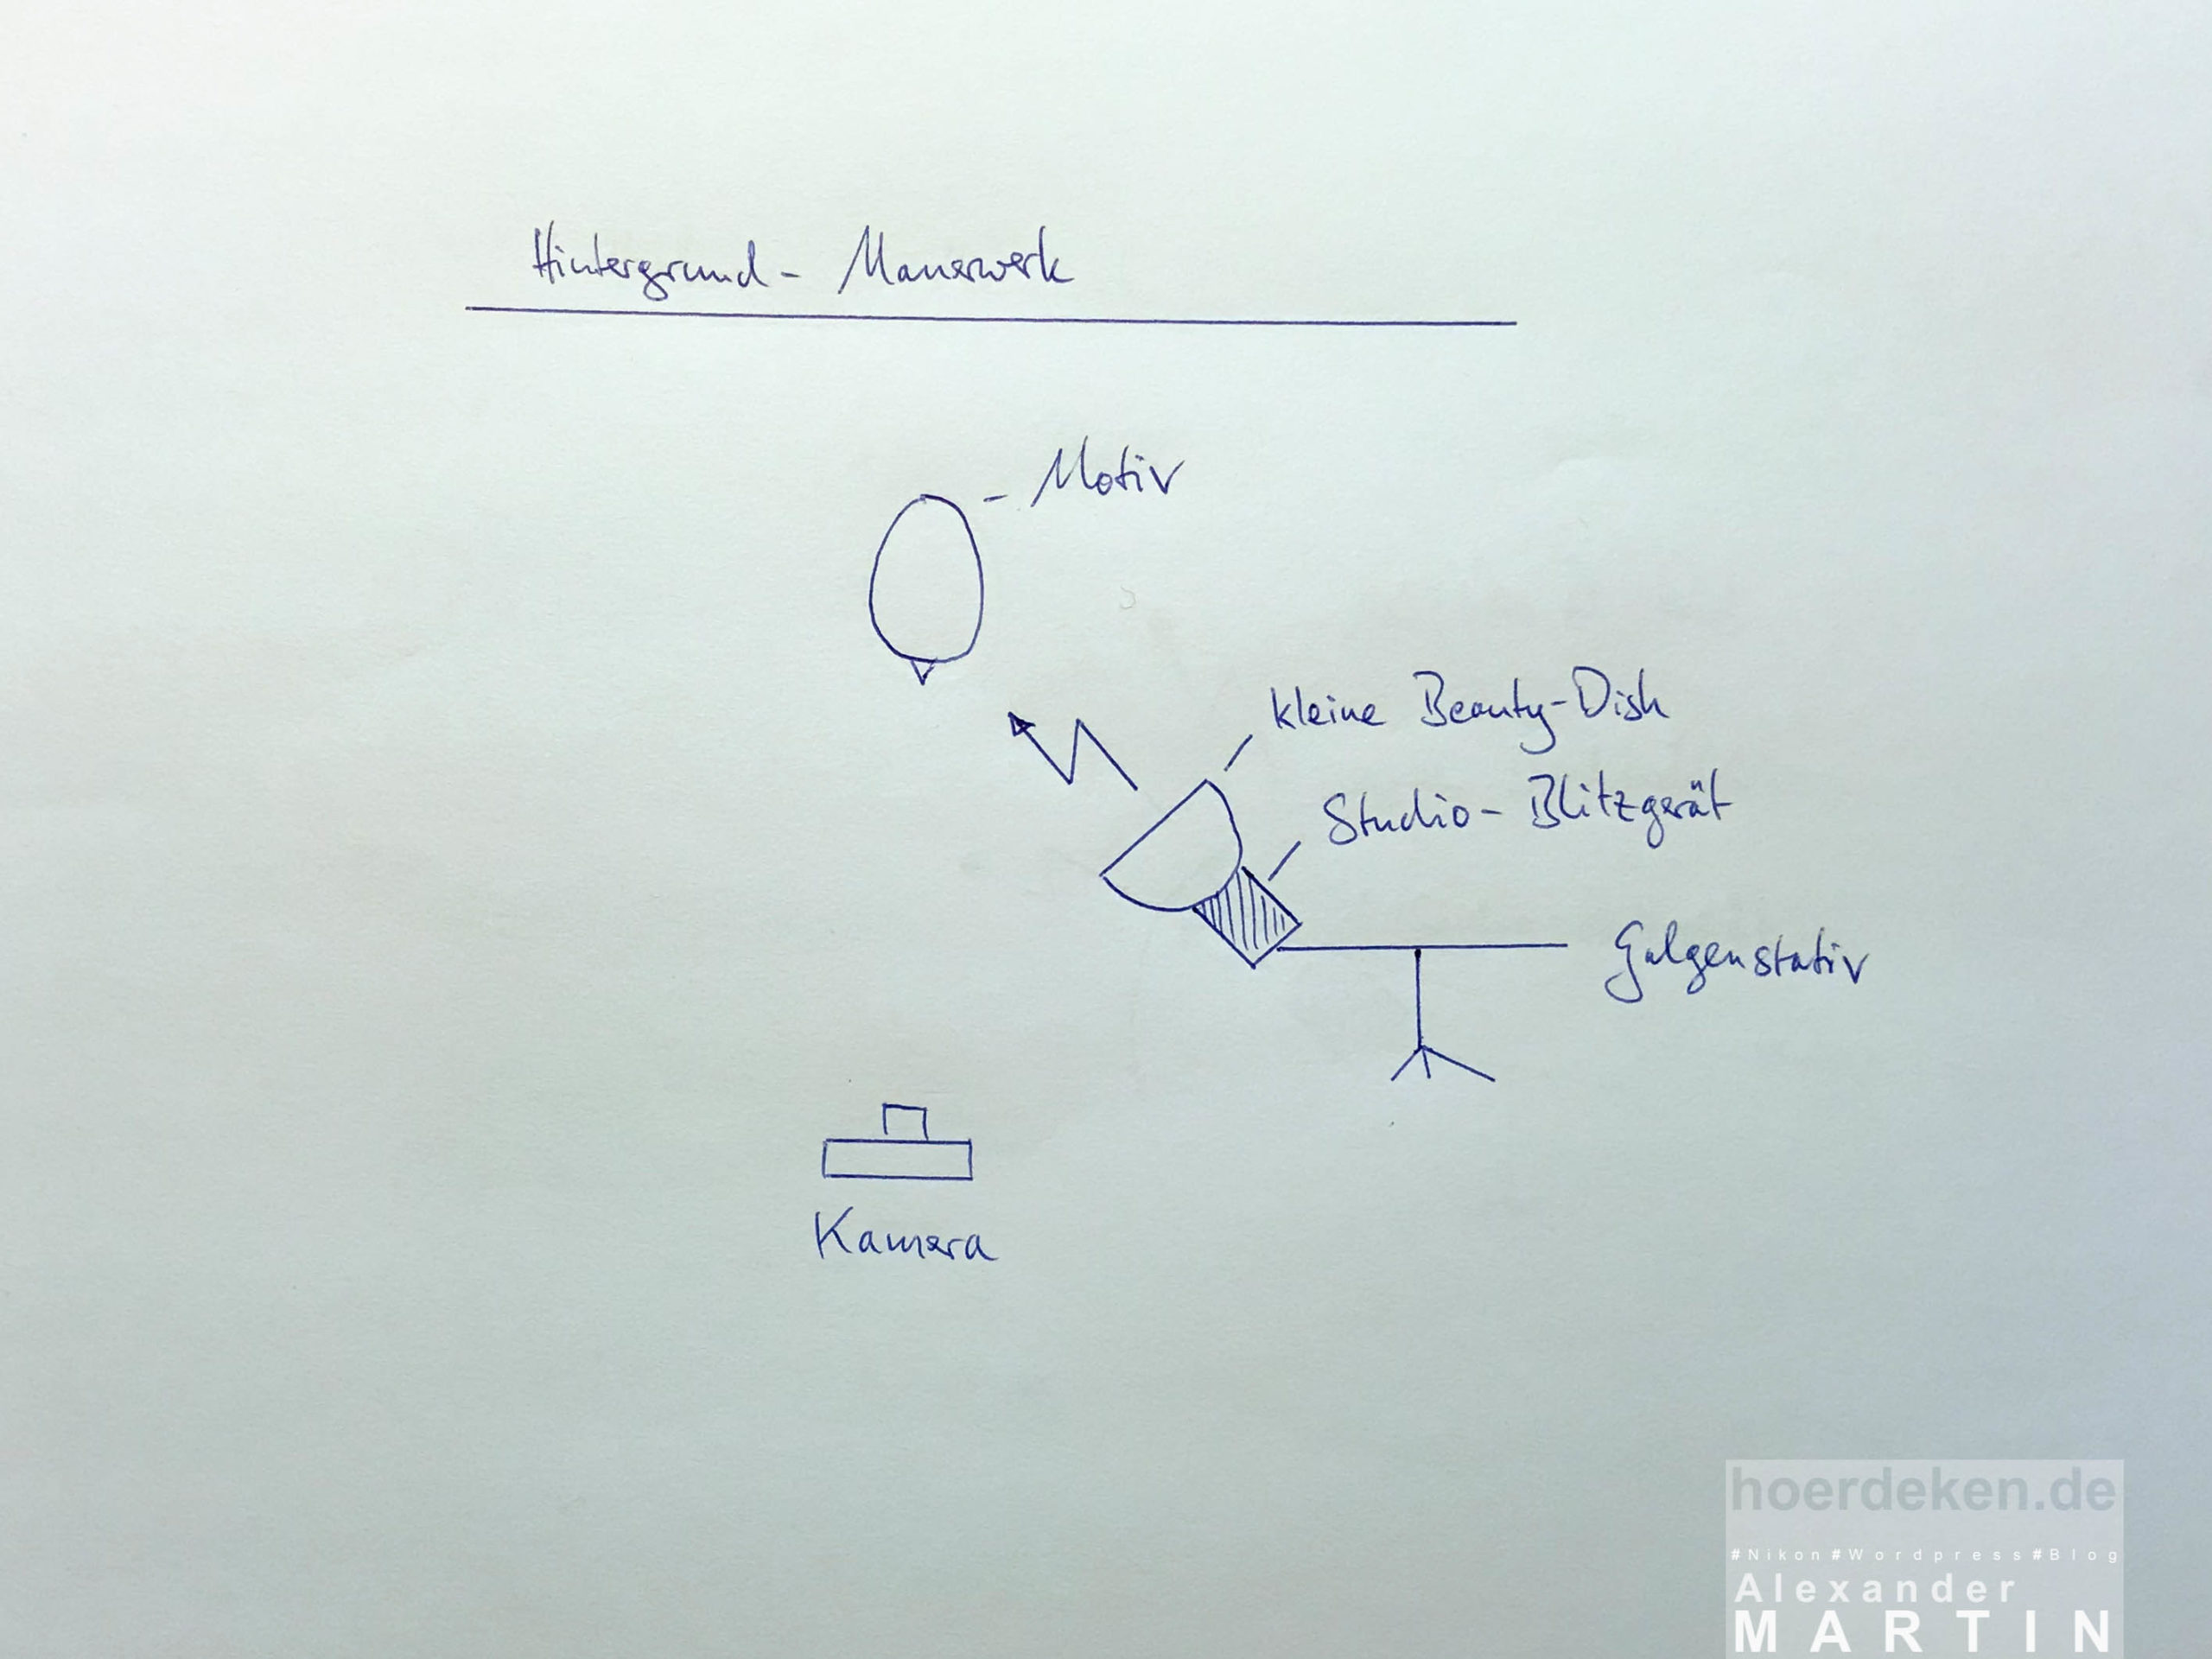 Hintergrund - Mauerwerk
- Motiv
kleine Beauty-Dish
Studio - Blitzgerät
Galgenstativ
Kamera
hoerdeken.de
#Nikon#Wordpress#Blog
Alexander
MARTIN